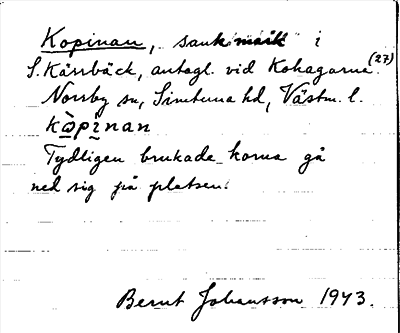 Kopinan, sank mark i
S. Kärrbäck, antagl. vid Kohagarna. (27)
Norrby sn, Simtuna hd, Västm. l.
kò̱pì̱nan
Tydligen brukade korna gå
ned sig på platsen.
Bernt Johansson 1943.